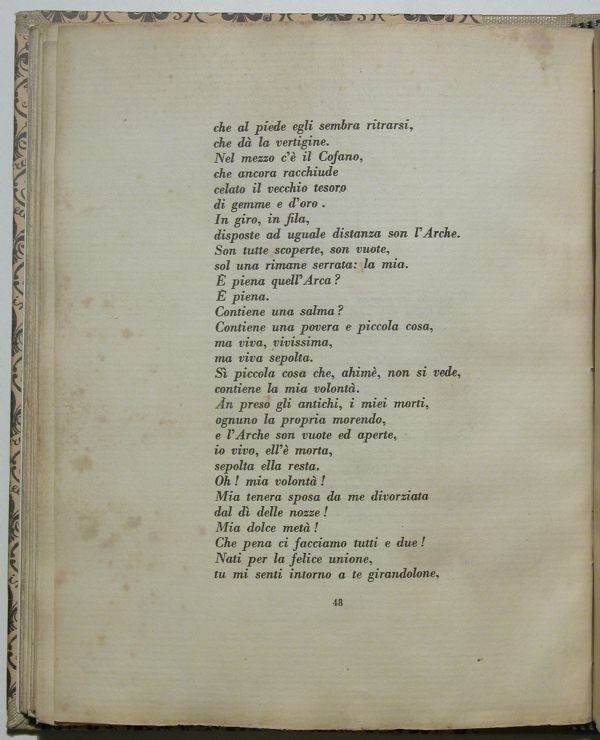 che al piede egli sembra ritrarsi,
che dà la vertigine.
Nel mezzo c'è il Cofano,
che ancora racchiude
celato il vecchio tesoro
di gemme e d'oro .
In giro, in fila,
disposte ad uguale distanza son l'Arche.
Son tutte scoperte, son vuote,
sol una rimane serrata: la mia.
È piena quell'Arca ?
È piena.
Contiene una salma ?
Contiene una povera e piccola cosa,
ma viva, vivissima,
ma viva sepolta.
Sì piccola cosa che, ahimè, non si vede,
contiene la mia volontà.
An preso gli antichi, i miei morti,
ognuno la propria morendo,
e l'Arche son vuote ed aperte,
io vivo, ell'è morta,
sepolta ella resta.
Oh ! mia volontà !
Mia tenera sposa da me divorziata
dal dì delle nozze !
Mia dolce metà !
Che pena ci facciamo tutti e due !
Nati per la felice unione,
tu mi senti intorno a te girandolone,
48